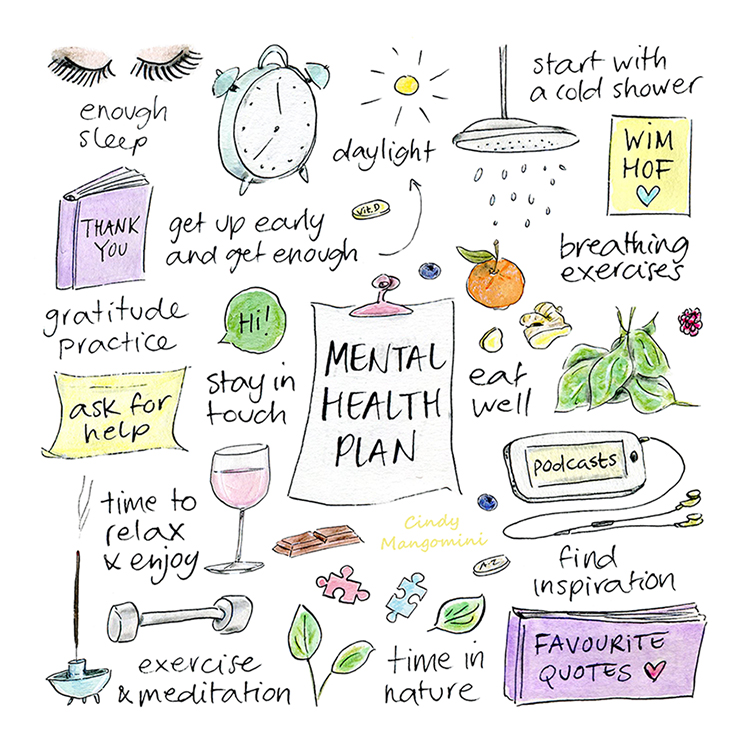 enough
sleep
daylight
start with
a cold shower
WIM
HOF
THANK
YOU
get up early
and get enough
Vit.D
breathing
exercises
gratitude
practice
Hi!
stay in
touch
MENTAL
HEALTH
PLAN
eat
well
ask for
help
PODCASTS
time to
relax
& enjoy
Cindy
Mangomini
A-Z
find
inspiration
exercise
& meditation
time in
nature
FAVOURITE
QUOTES